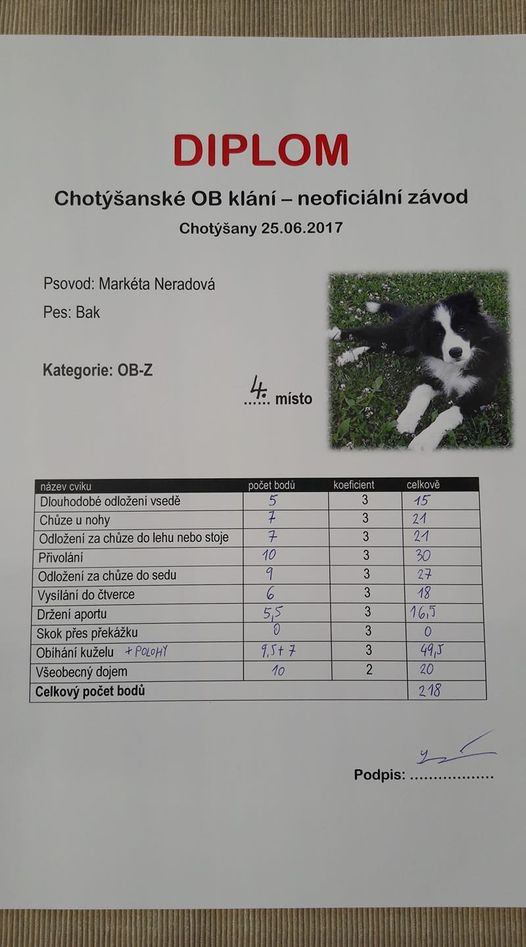 DIPLOM
Chotýšanské OB klání – neoficiální závod
Chotýšany 25.06.2017
Psovod: Markéta Neradová
Pes: Bak
Kategorie: OB-Z
4. místo
název cviku počet bodů koeficient celkově
Dlouhodobé odložení vsedě 5 3 15
Chůze u nohy 7 3 21
Odložení za chůze do lehu nebo stoje 7 3 21
Přivolání 10 3 30
Odložení za chůze do sedu 9 3 27
Vysílání do čtverce 6 3 18
Držení aportu 5,5 3 16,5
Skok přes překážku 0 3 0
Obíhání kuželu + POLOHY 9,5+7 3 49,5
Všeobecný dojem 10 2 20
Celkový počet bodů 218
Podpis: ..................